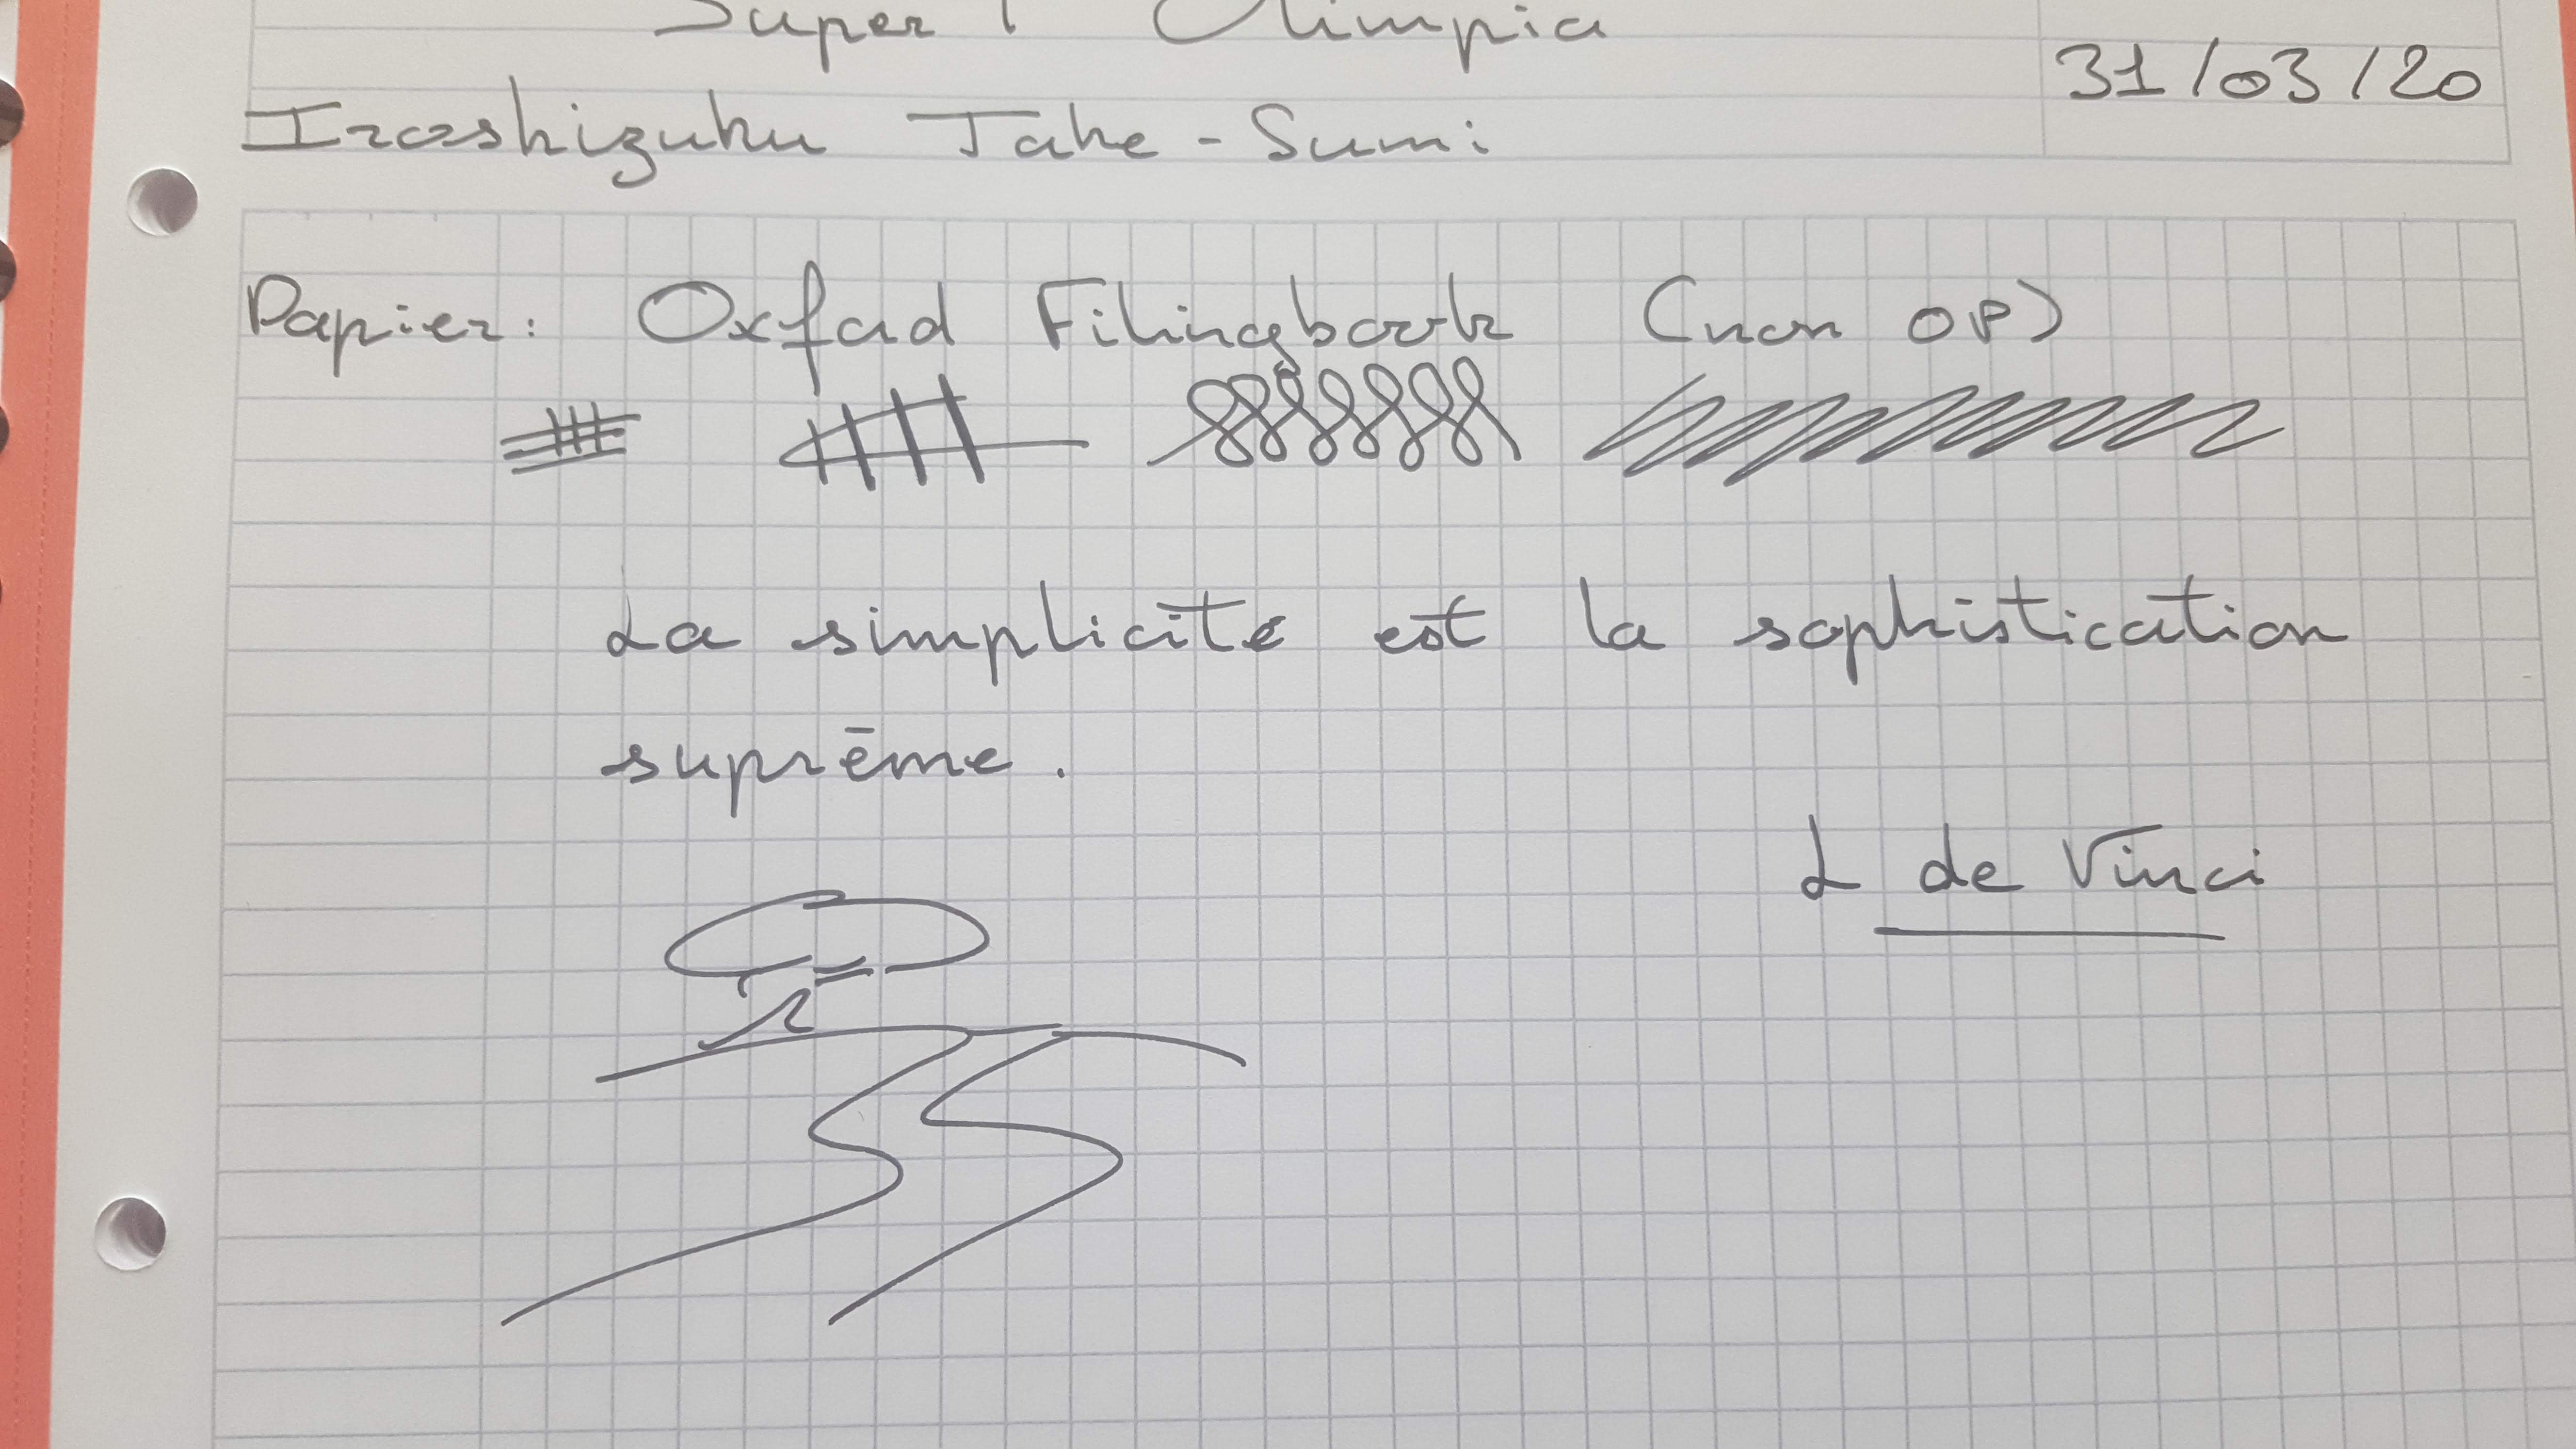 Super 1 Olimpia
31/03/20
Iroshizuku Take-Sumi
Papier: Oxford Filingbook (non OP)
La simplicité est la sophistication
suprême.
L de Vinci